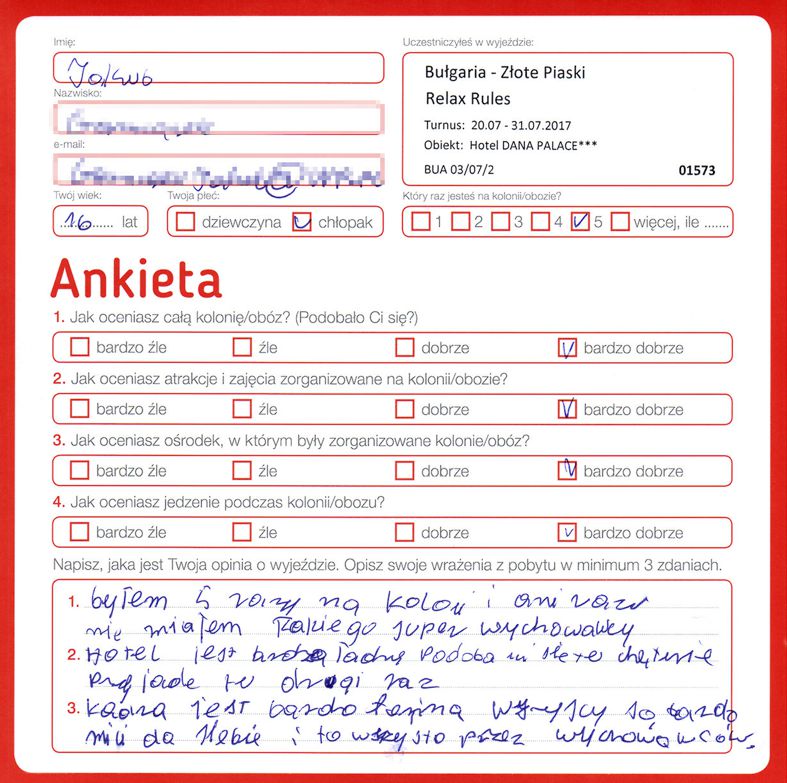 Imię:
Jakub
Nazwisko:
e-mail:
Twój wiek:
16 lat
Twoja płeć:
dziewczyna chłopak
Uczestniczyłeś w wyjeździe:
Bułgaria - Złote Piaski
Relax Rules
Turnus: 20.07 - 31.07.2017
Obiekt: Hotel DANA PALACE***
BUA 03/07/2 01573
Który raz jesteś na kolonii/obozie?
1 2 3 4 5 więcej, ile .......
Ankieta
1. Jak oceniasz całą kolonię/obóz? (Podobało Ci się?)
bardzo źle źle dobrze bardzo dobrze
2. Jak oceniasz atrakcje i zajęcia zorganizowane na kolonii/obozie?
bardzo źle źle dobrze bardzo dobrze
3. Jak oceniasz ośrodek, w którym były zorganizowane kolonie/obóz?
bardzo źle źle dobrze bardzo dobrze
4. Jak oceniasz jedzenie podczas kolonii/obozu?
bardzo źle źle dobrze bardzo dobrze
Napisz, jaka jest Twoja opinia o wyjeździe. Opisz swoje wrażenia z pobytu w minimum 3 zdaniach.
1. byłem 5 razy na kolon i ani razu
nie miałem takiego super wychowawcy
2. Hotel jest ładny Podoba mi
przyjade tu drugi raz
3. kadra jest bardzo fajna wszyscy są bardzo
mili da siebie i to wszysto przez wychowawców.